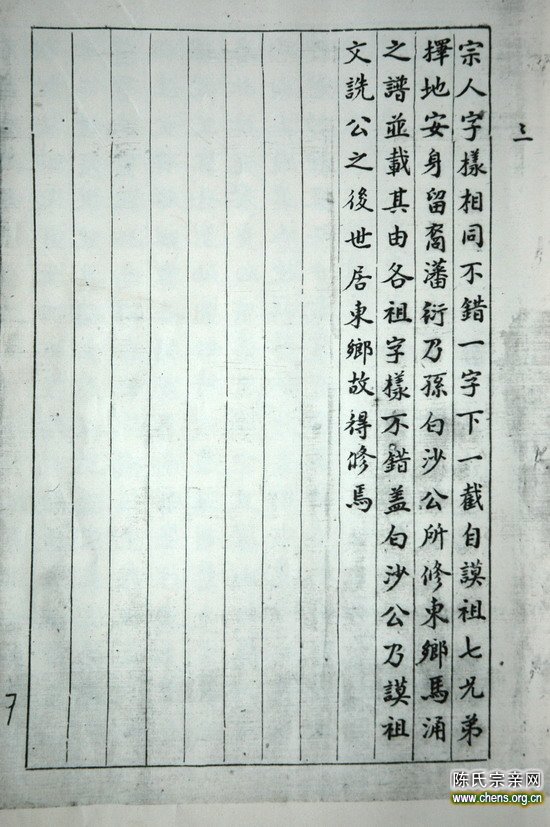 三
宗人字樣相同不錯一字下一截自謨祖七兄弟
擇地安身留裔藩衍乃孫白沙公所修東鄉馬涌
之譜並載其由各祖字樣不錯盖白沙公乃謨祖
文詵公之後世居東鄉故得修焉
7
陈氏宗亲网
www.chens.org.cn